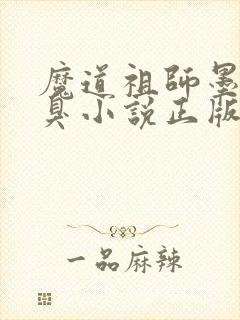 魔道祖師墨
臭小說正版
一品麻辣